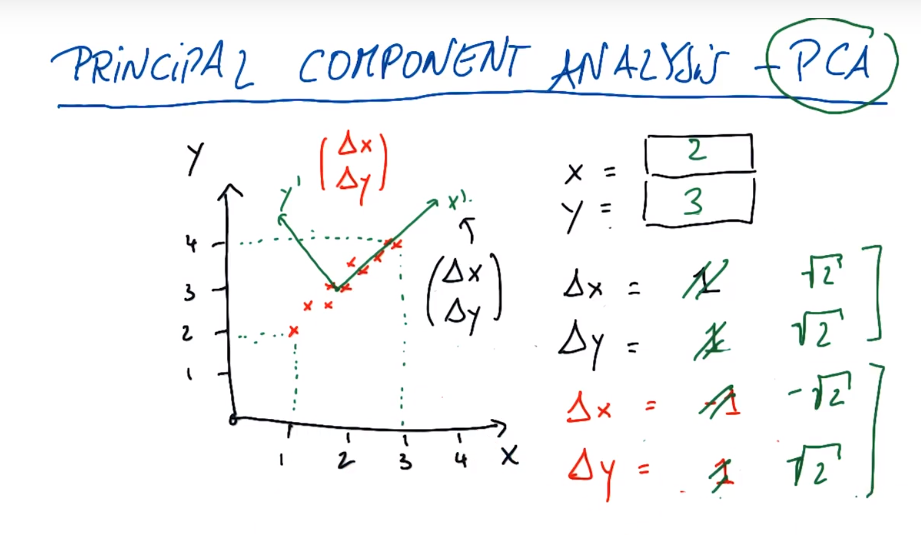 PRINCIPAL COMPONENT ANALYSIS - PCA
Y
(Δx
Δy)
y'
x'
(Δx
Δy)
4
3
2
1
0
1 2 3 4 X
x = 2
y = 3
Δx = √2
Δy = √2
Δx = -1 -√2
Δy = 1 √2